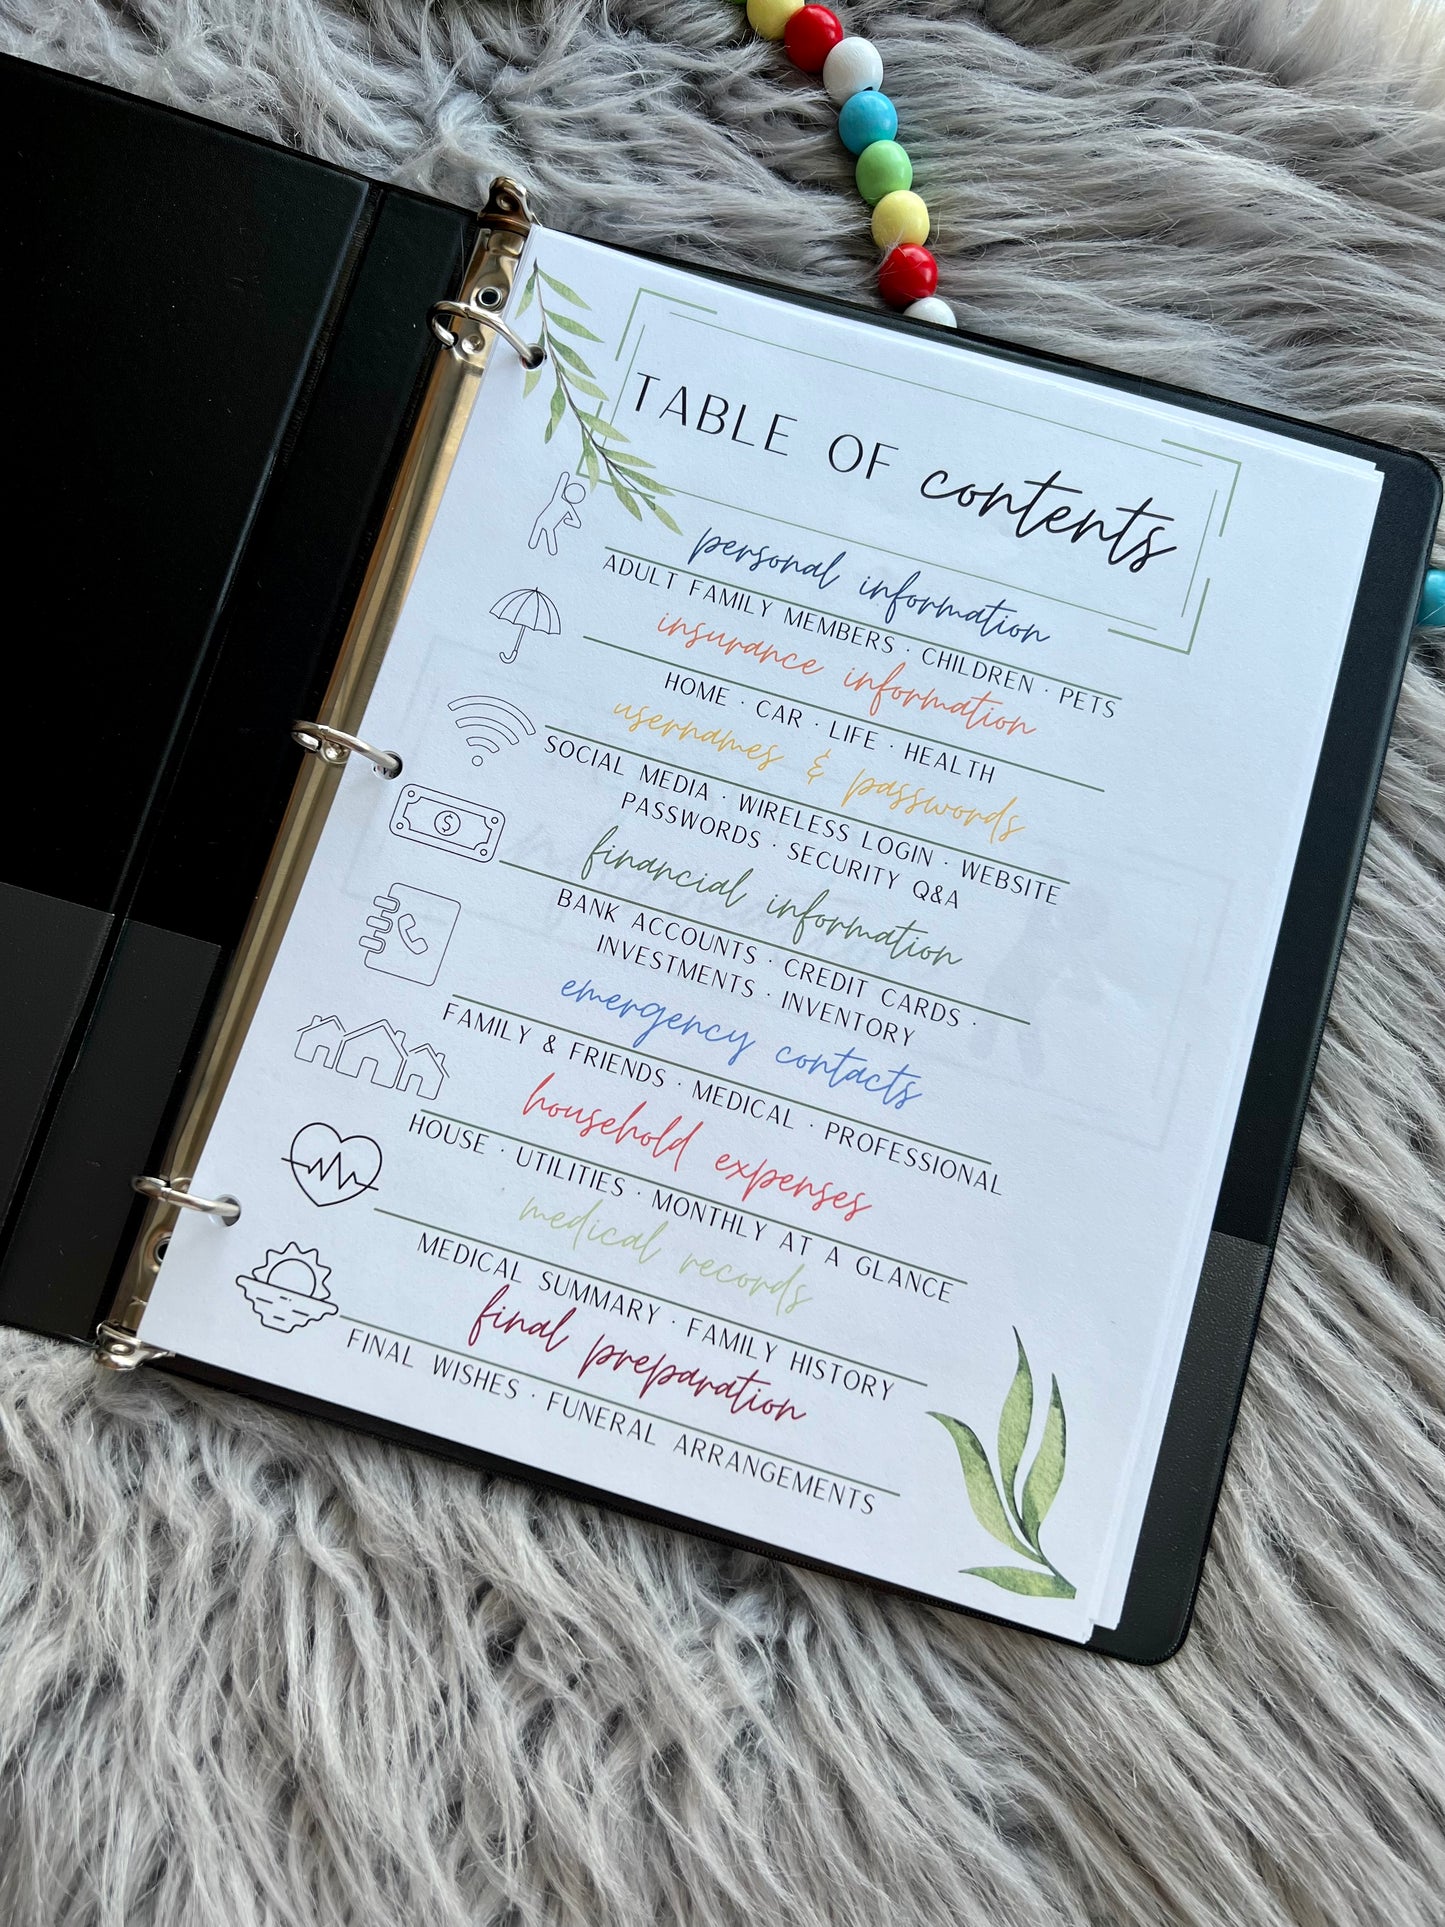 TABLE OF contents
personal information
ADULT FAMILY MEMBERS · CHILDREN · PETS
insurance information
HOME · CAR · LIFE · HEALTH
usernames & passwords
SOCIAL MEDIA · WIRELESS LOGIN · WEBSITE
PASSWORDS · SECURITY Q&A
financial information
BANK ACCOUNTS · CREDIT CARDS ·
INVESTMENTS · INVENTORY
emergency contacts
FAMILY & FRIENDS · MEDICAL · PROFESSIONAL
household expenses
HOUSE · UTILITIES · MONTHLY AT A GLANCE
medical records
MEDICAL SUMMARY · FAMILY HISTORY
final preparation
FINAL WISHES · FUNERAL ARRANGEMENTS
$